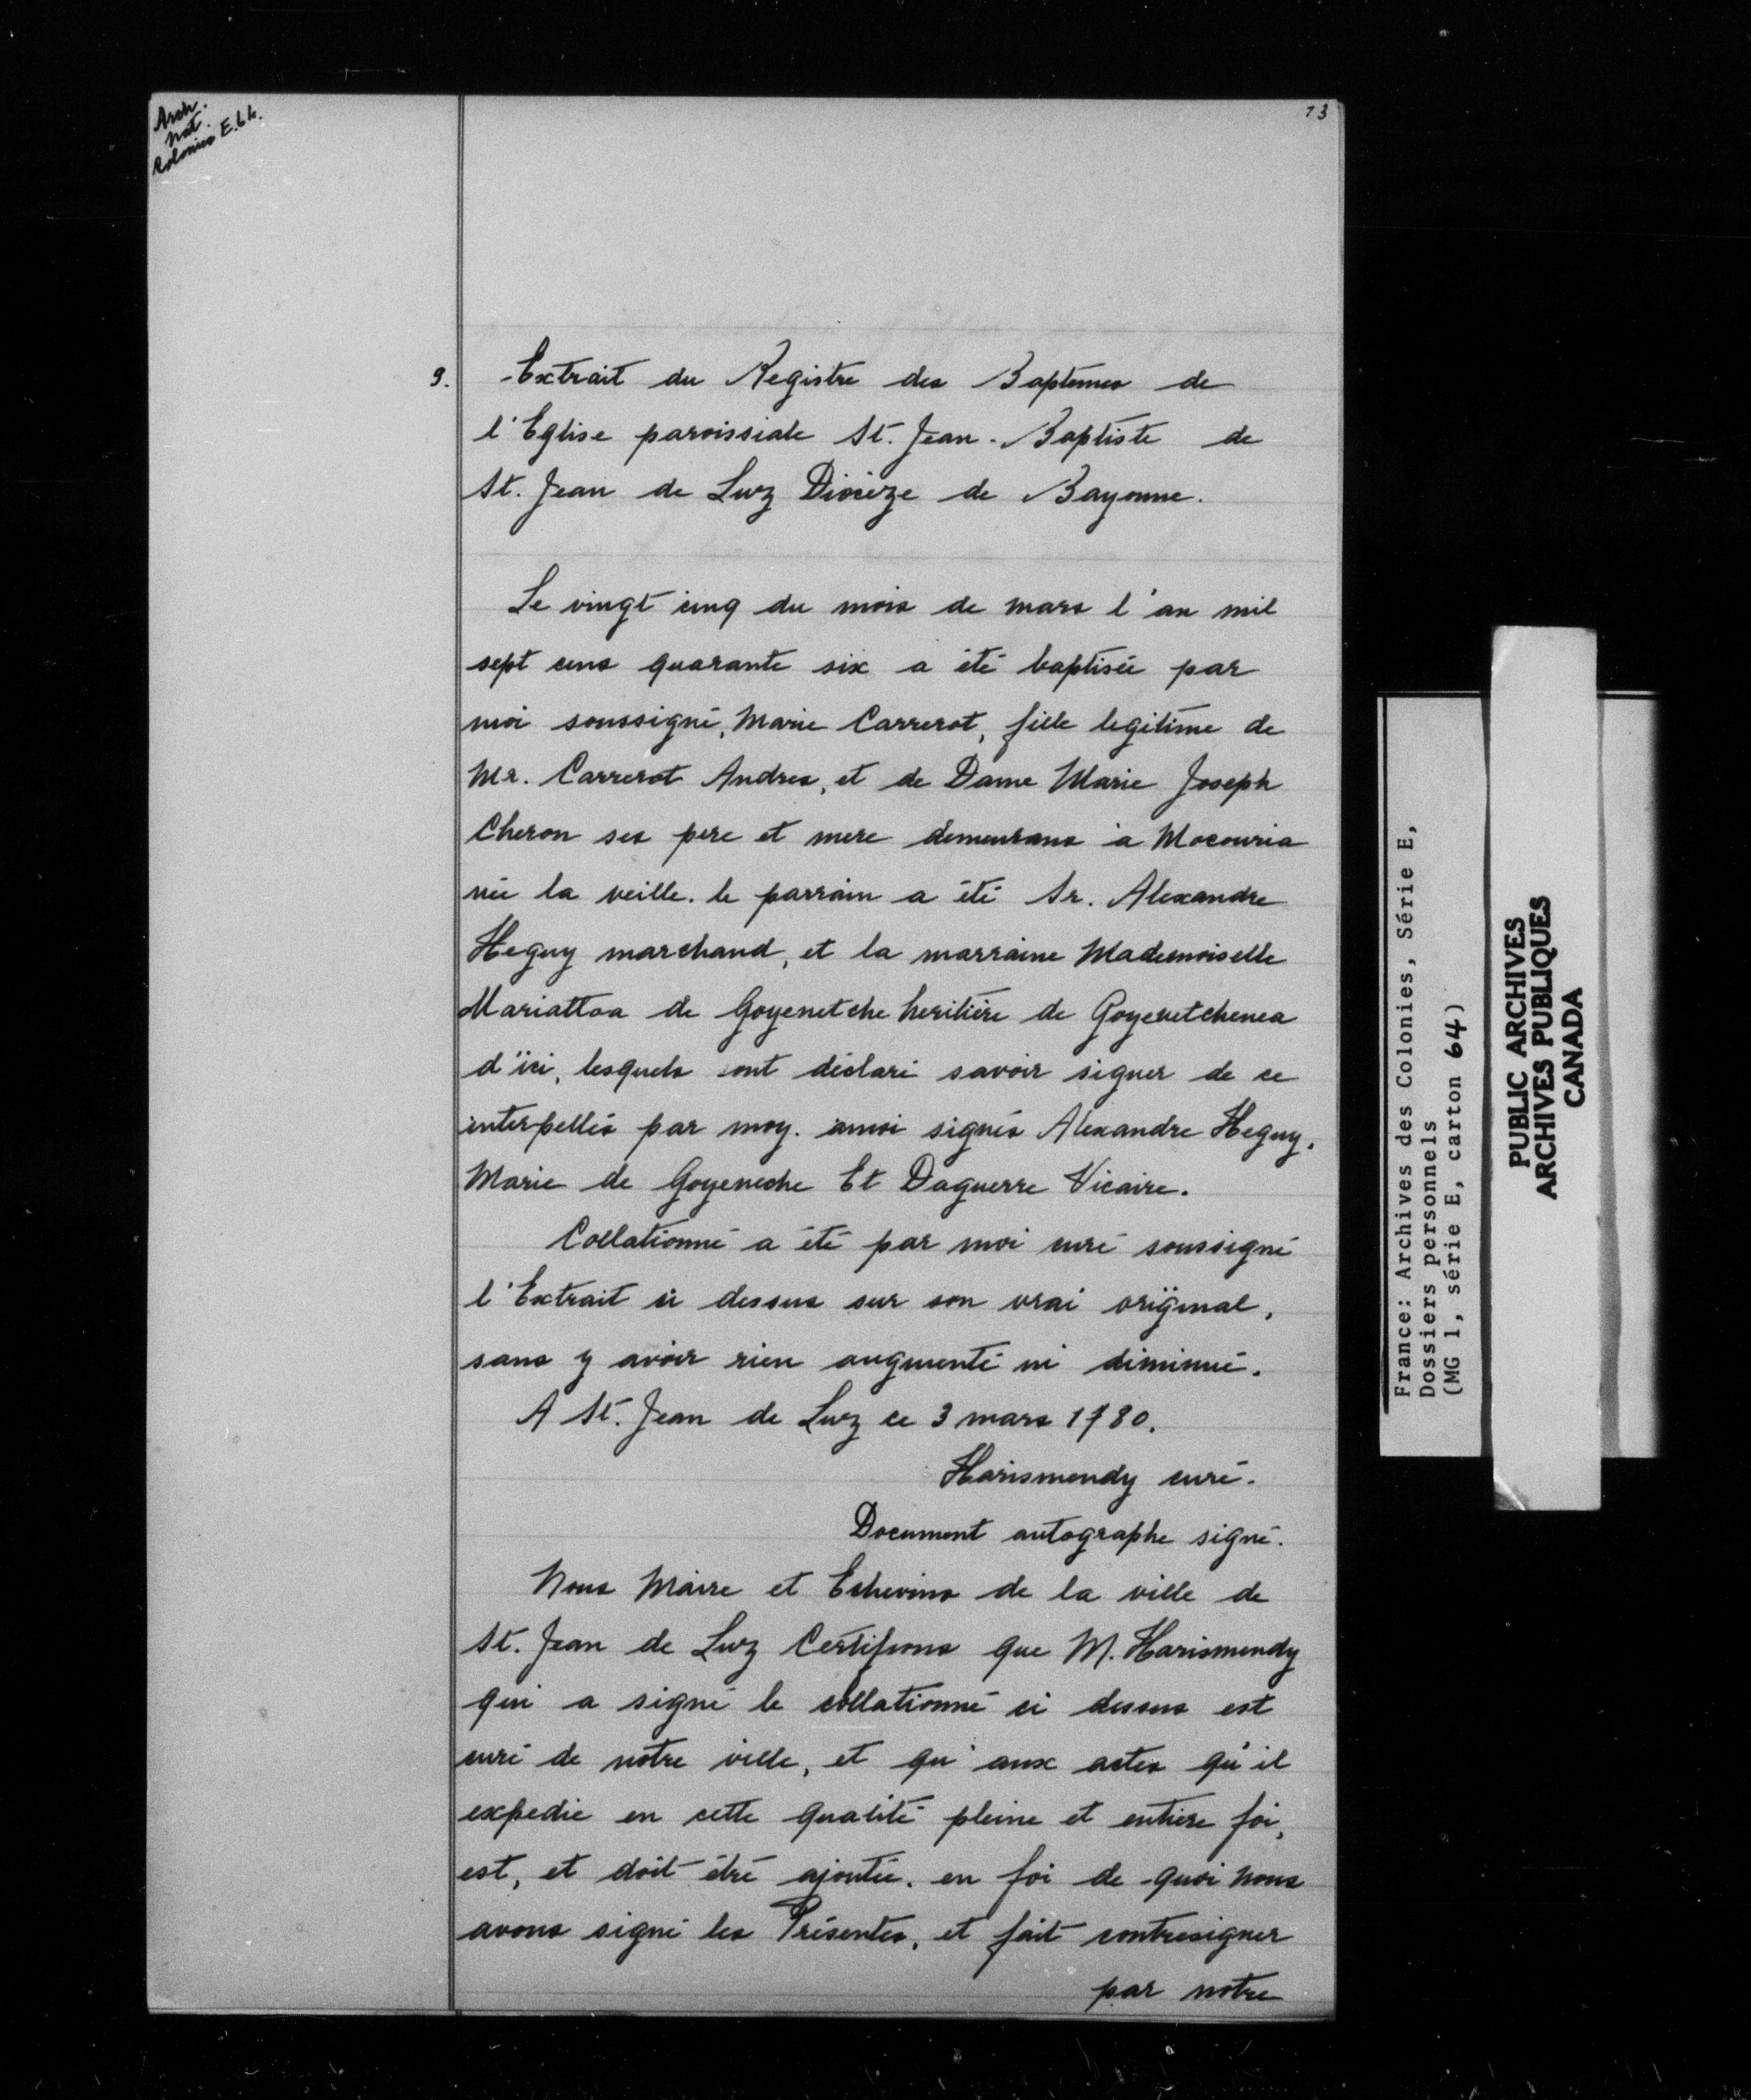 Arch.
Nat.
Colonies E.64.
73
9.
Extrait du Registre des Baptemes de
l'Eglise paroissiale St. Jean-Baptiste de
St. Jean de Luz Diocèze de Bayonne.
Le vingt cinq du mois de mars l'an mil
sept cens quarante six a été baptisée par
moi soussigné, Marie Carrerot, fille legitime de
Mr. Carrerot Andres, et de Dame Marie Joseph
Cheron ses pere et mere demeurans à Mocouria
née la veille. le parrain a été Sr. Alexandre
Heguy marchand, et la marraine Mademoiselle
Mariattoa de Goyenetche heritière de Goyenetchenea
d'ici, lesquels ont déclaré savoir signer de ce
interpellés par moy. ainsi signés Alexandre Heguy,
Marie de Goyeneche Et Daguerre Vicaire.
Collationné a été par moi curé soussigné
l'Extrait ci dessus sur son vrai original,
sans y avoir rien augmenté ni diminué.
A St. Jean de Luz ce 3 mars 1780.
Harismendy curé.
Document autographe signé.
Nous Maire et Echevins de la ville de
St. Jean de Luz Certifions que M. Harismendy
qui a signé le collationné ci dessus est
curé de notre ville, et qu'aux actes qu'il
expedie en cette qualité pleine et entiere foi,
est, et doit être ajoutée. en foi de quoi nous
avons signé les Présentes, et fait contresigner
par notre
France: Archives des Colonies, Série E,
Dossiers personnels
(MG 1, série E, carton 64)
PUBLIC ARCHIVES
ARCHIVES PUBLIQUES
CANADA